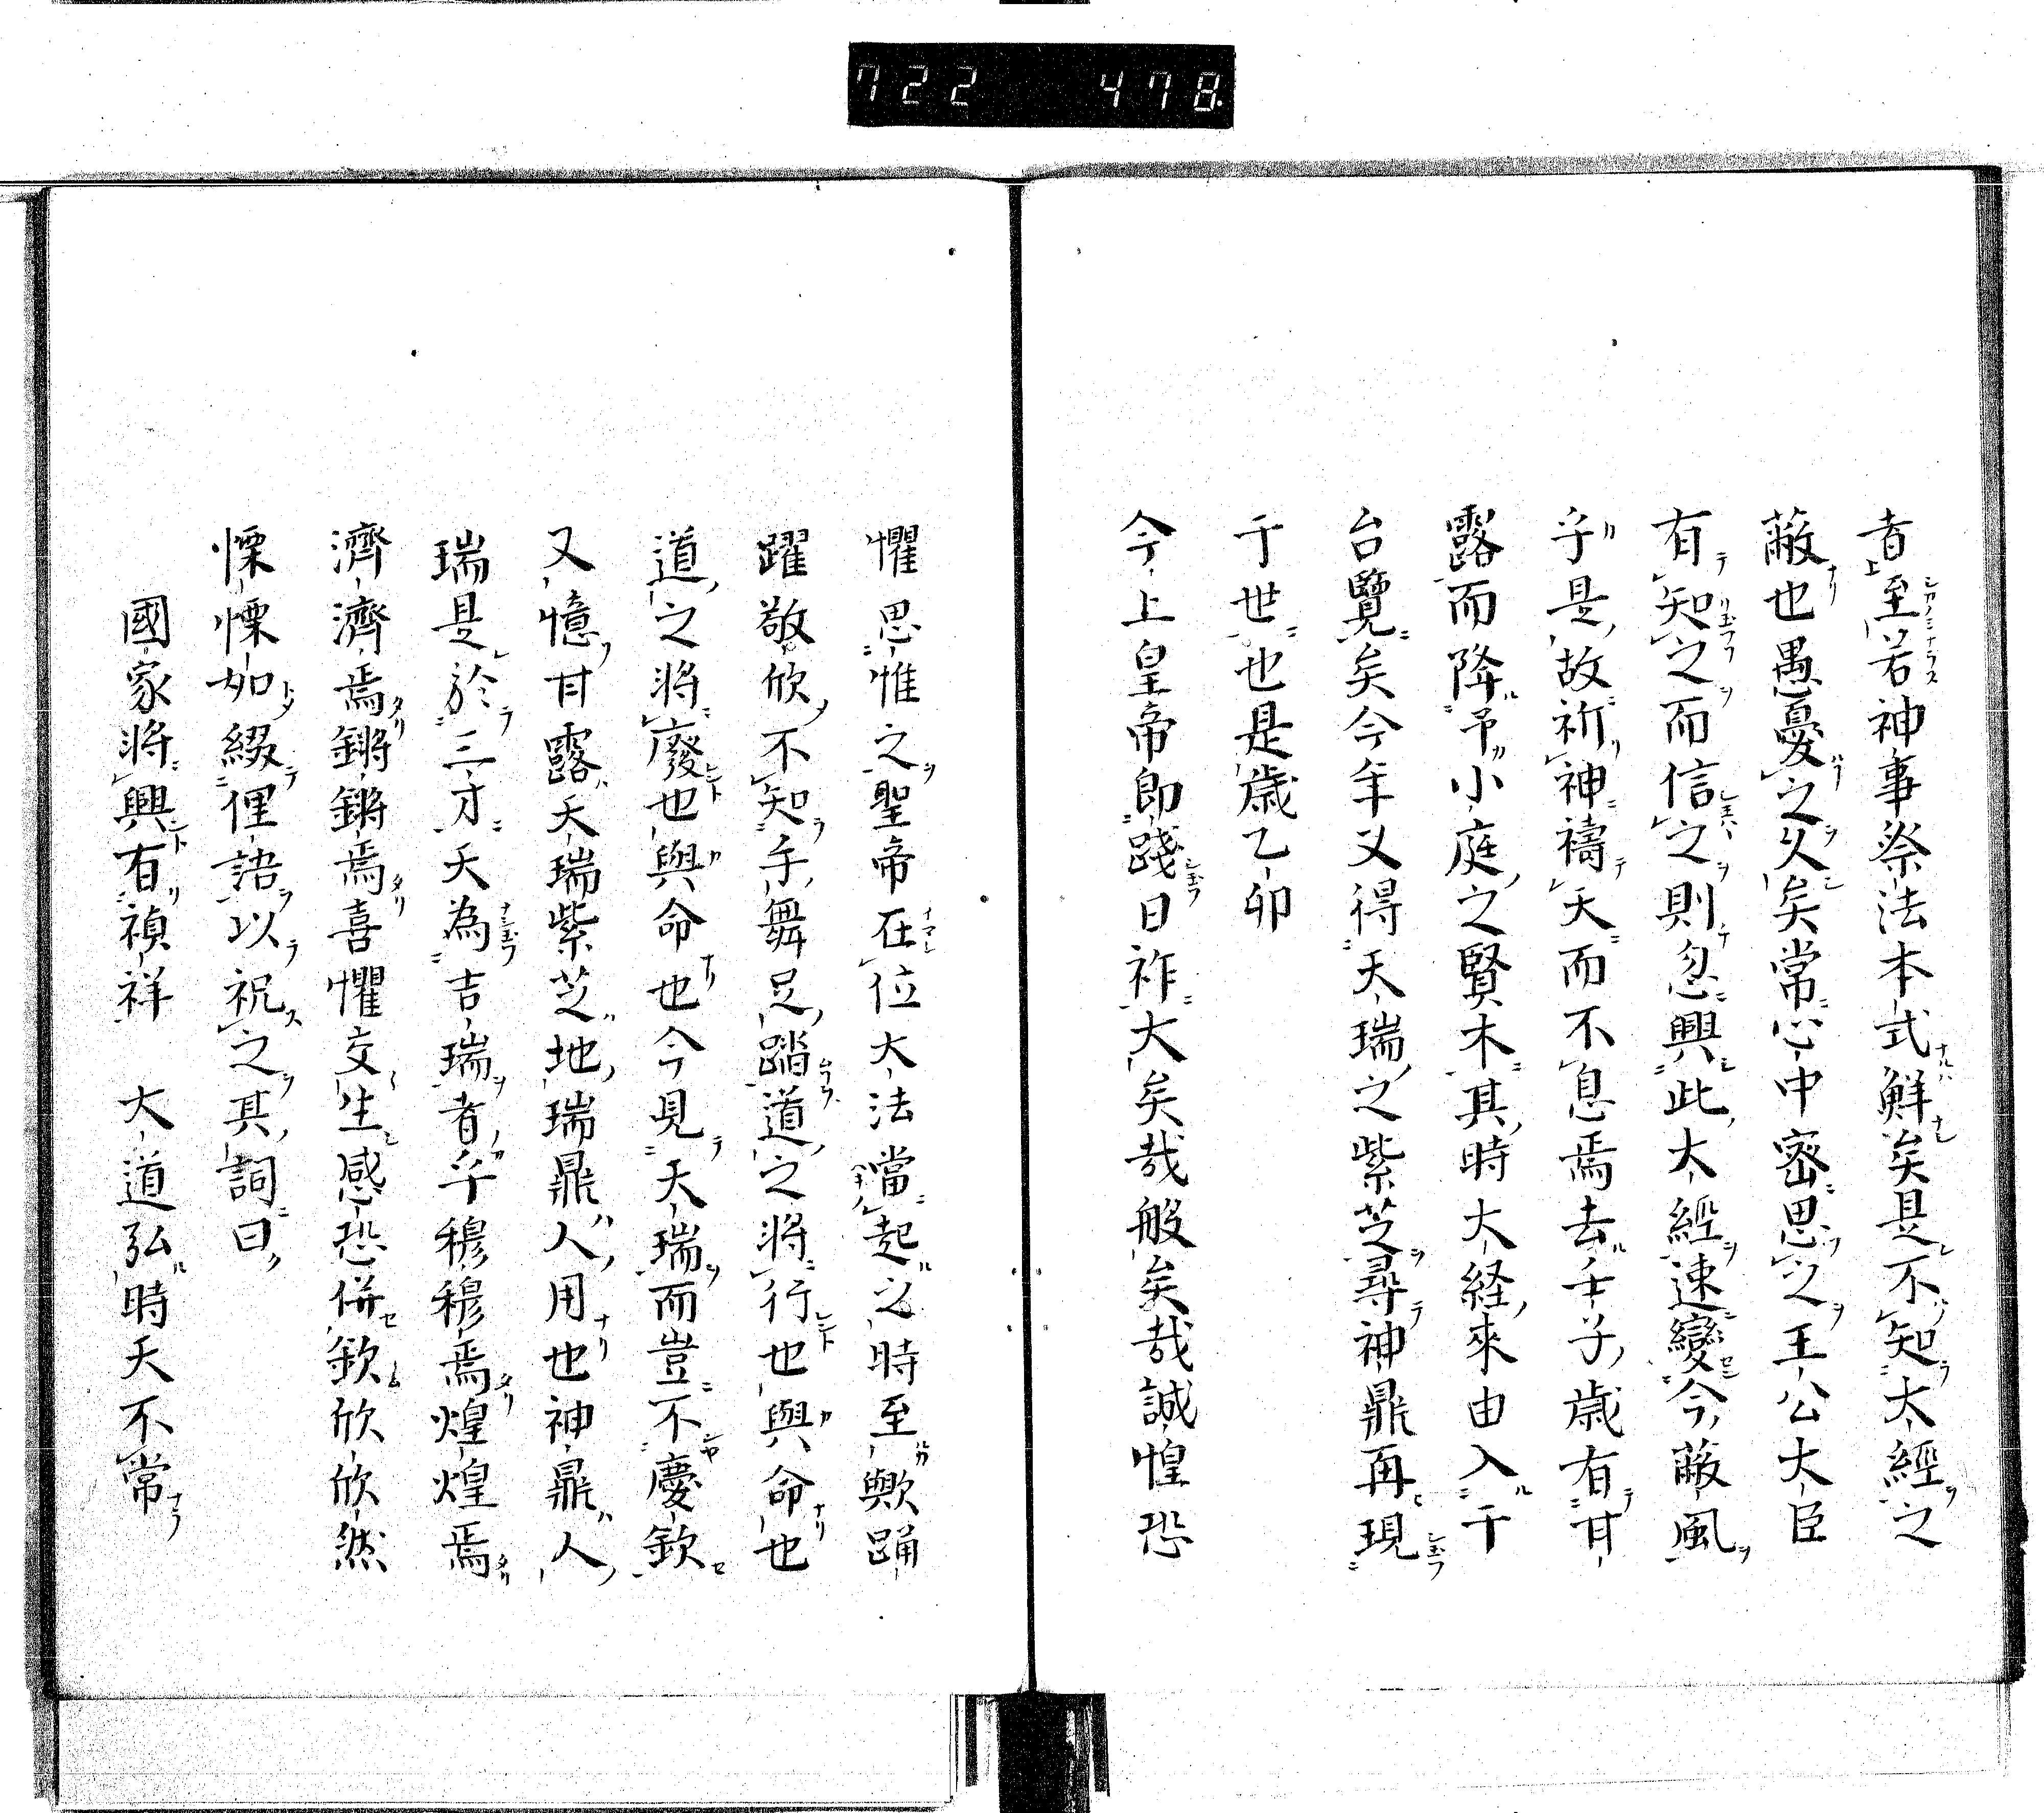 722 478
者至若神事祭法本式鮮矣是不知大經之
蔽也愚憂之久矣常心中密思之王公大臣
有知之而信之則忽興此大經速變今蔽風
乎是故祈神禱天而不息焉去壬子歳有甘
露而降予小庭之賢木其時大経來由入于
台覽矣今年又得天瑞之紫芝尋神鼎再現
于世也是歳乙卯
今上皇帝即踐日祚大矣哉般矣哉誠惶恐
懼思惟之聖帝在位大法當起之時至歟踊
躍敬欣不知手舞足蹈道之將行也與命也
道之將廢也與命也今見天瑞而豈不慶欽
又憶甘露天瑞紫芝地瑞鼎人用也神鼎人
瑞是於三才天為吉瑞者乎穆穆焉煌煌焉
濟濟焉鏘鏘焉喜懼交生感恐併欽欣欣然
慄慄如綴俚語以祝之其詞曰
國家將興有禎祥 大道弘時天不常